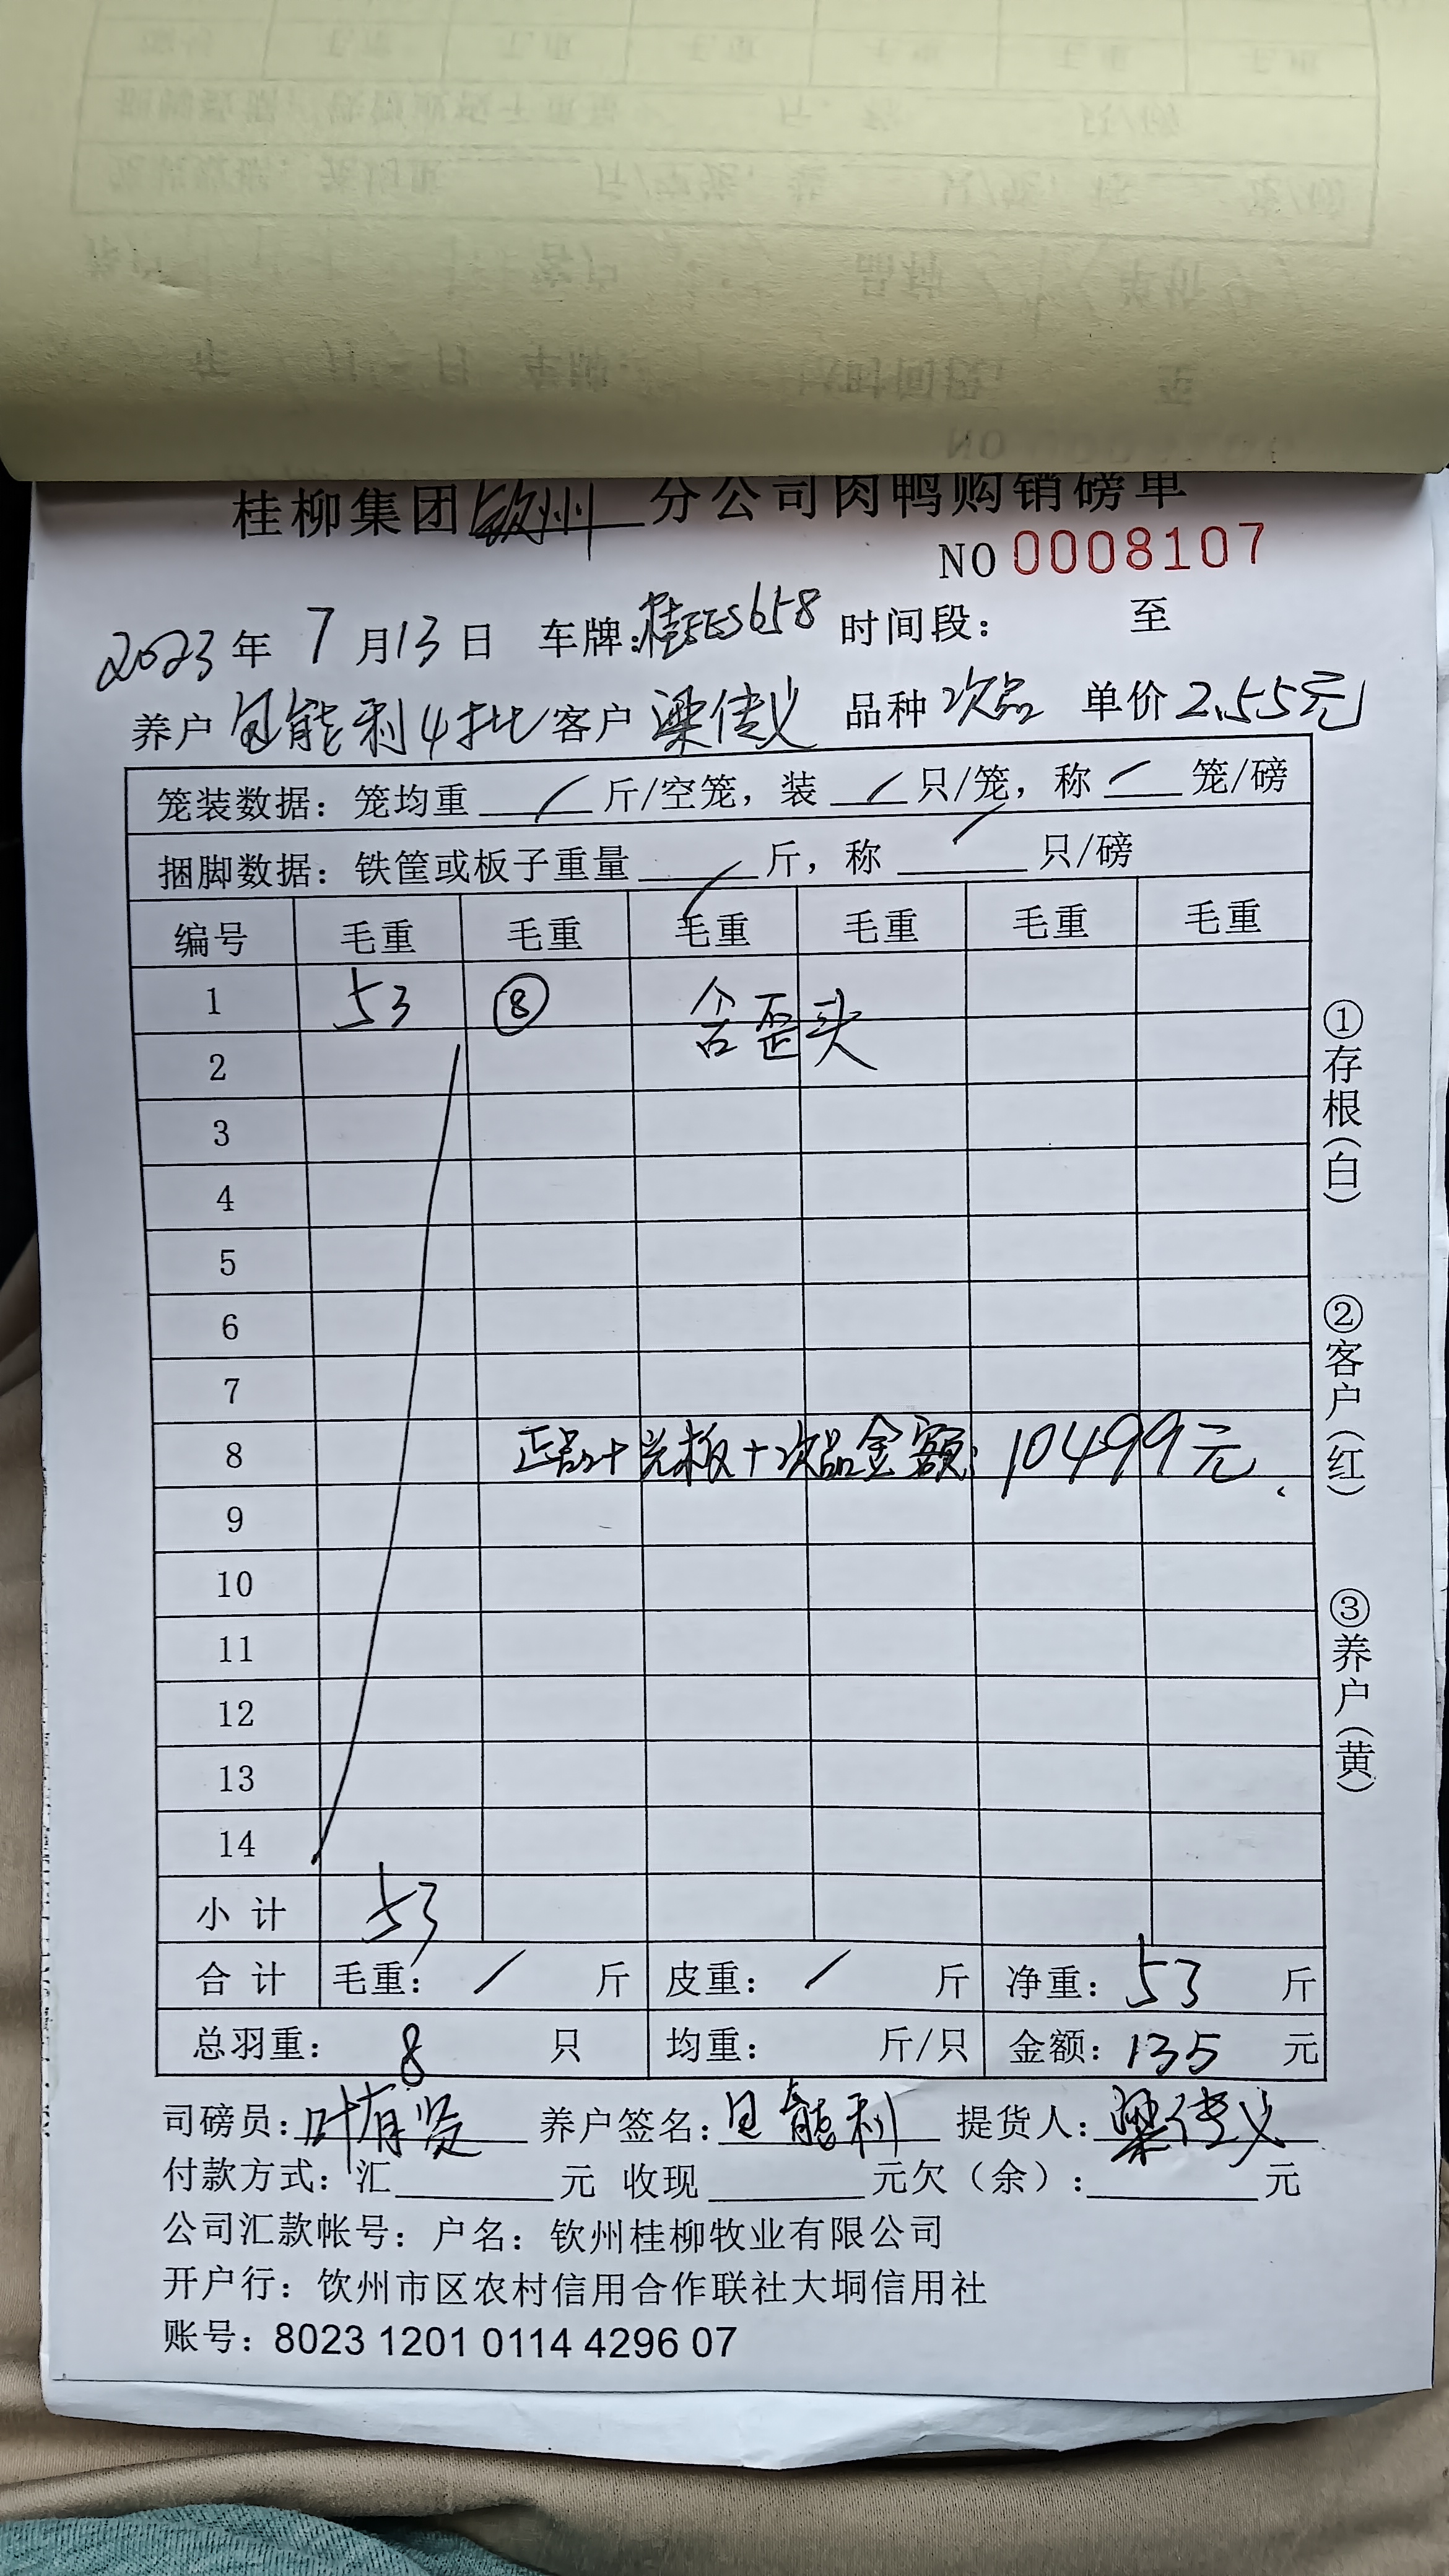 桂柳集团钦州分公司肉鸭购销磅单
NO 0008107
2023年 7月13日 车牌:桂FES658 时间段: 至
养户 包能利4批 客户 梁传义 品种 次品 单价 2.55元
笼装数据: 笼均重 / 斤/空笼, 装 / 只/笼, 称 / 笼/磅
捆脚数据: 铁筐或板子重量 / 斤, 称 / 只/磅
编号 毛重 毛重 毛重 毛重 毛重 毛重
1 53 ⑧ 含歪头
2
3
4
5
6
7
8 正品+光板+次品金额: 10499元.
9
10
11
12
13
14
小计 53
合计 毛重: / 斤 皮重: / 斤 净重: 53 斤
总羽重: 8 只 均重: 斤/只 金额: 135 元
司磅员: 叶有贤 养户签名: 包能利 提货人: 梁传义
付款方式: 汇 元 收现 元欠(余): 元
公司汇款帐号: 户名: 钦州桂柳牧业有限公司
开户行: 钦州市区农村信用合作联社大垌信用社
账号: 8023 1201 0114 4296 07
①存根(白)
②客户(红)
③养户(黄)